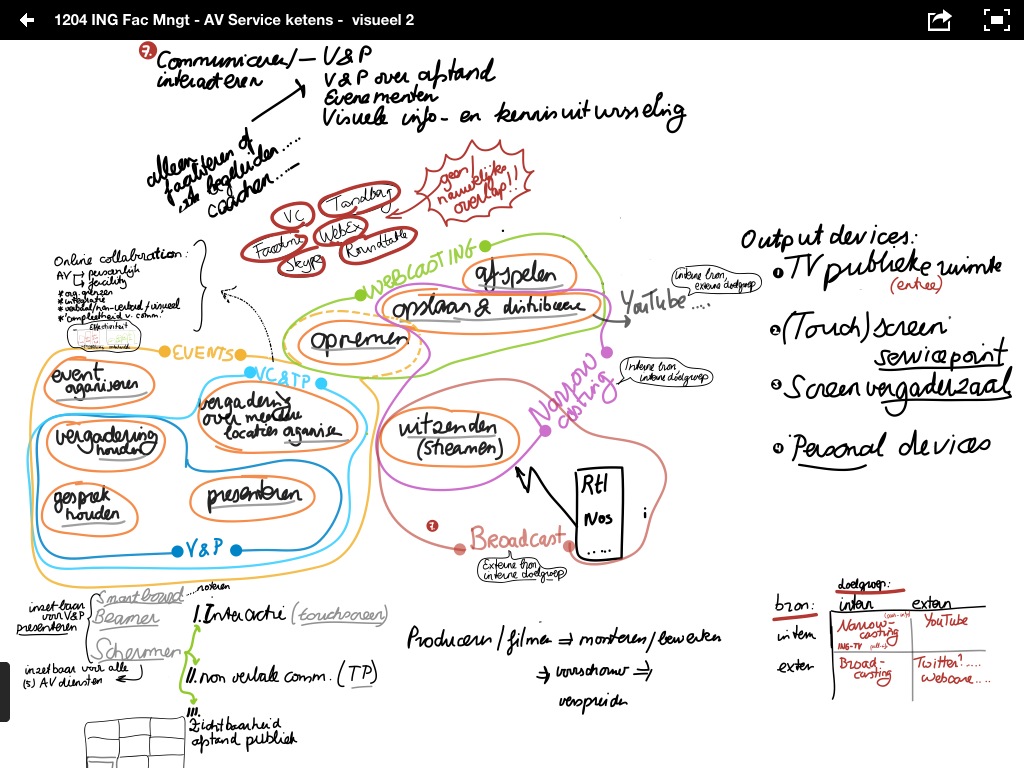 1204 ING Fac Mngt - AV Service ketens - visueel 2
7.
Communiceren/ — V&P
interacteren
V&P over afstand
Evenementen
Visuele info- en kennisuitwisseling
alleen
faciliteren of
begeleiden.....
coachen....
geen/
nauwelijks
overlap!!
VC
Tandberg
Facetime
WebEx
Skype
Roundtable
Online collaboration:
AV → persoonlijk
→ facility
* org. grenzen
* integratie
* verbaal/non-verbaal/visueel
* 'compleetheid v. comm.'
Effectiviteit
WEBCASTING
afspelen
opslaan & distribueren
opnemen
YouTube....
Interne bron,
externe doelgroep
EVENTS
event
organiseren
VC&TP
vergadering
over meerdere
locaties organise
vergadering
houden
gesprek
houden
presenteren
V&P
uitzenden
(streamen)
Narrow
casting
Interne bron,
interne doelgroep
Rtl
Nos
.....
i
7
Broadcast
Externe bron,
interne doelgroep
Output devices:
1 TV publieke ruimte
(entree)
2 (Touch)screen
servicepoint
3 Screen vergaderzaal
4 Personal devices
inzetbaar
voor V&P
presenteren
Smartboard
noteren
Beamer
Schermen
inzetbaar voor alle
(5) AV diensten
I. Interactie (touchscreen)
II. non verbale comm. (TP)
III.
Zichtbaarheid
afstand publiek
Produceren/filmen ⇒ monteren/bewerken
⇒ voorschouw ⇒
verspreiden
doelgroep:
bron: intern extern
intern
Narrow-
casting
ING-TV
YouTube
extern
Broad-
casting
Twitter?....
webcare....